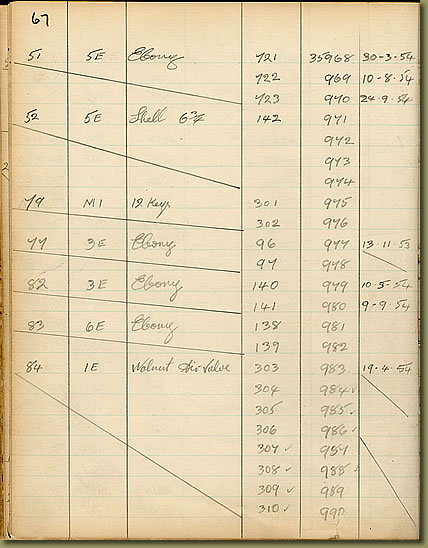 67
51 5E Ebony 721 35968 30-3-54
722 969 10-8-54
723 970 24-9-54
52 5E Shell 6¾ 142 971
972
973
974
79 M1 12 Keys 301 975
302 976
77 3E Ebony 96 977 13-11-53
97 978
82 3E Ebony 140 979 10-5-54
141 980 9-9-54
83 6E Ebony 138 981
139 982
84 1E Walnut Air Valve 303 983 19-4-54
304 984 ✓
305 985 ✓
306 986 ✓
307 ✓ 987
308 ✓ 988 ✓
309 ✓ 989
310 ✓ 990